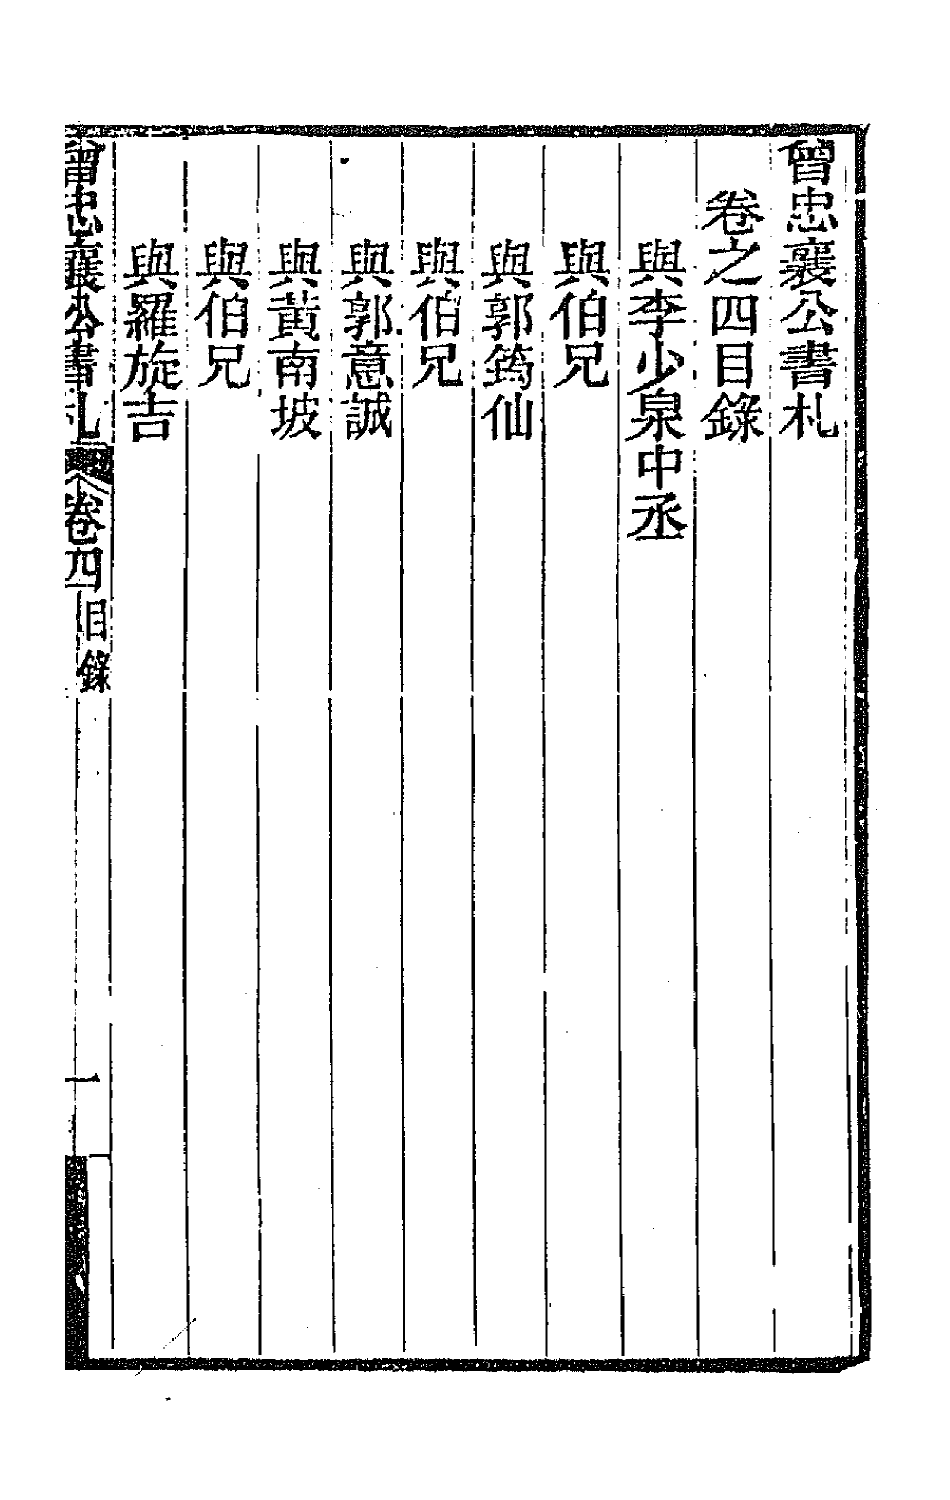 曾忠襄公書札
卷之四目錄
與李少泉中丞
與伯兄
與郭筠仙
與伯兄
與郭意誠
與黃南坡
與伯兄
與羅旋吉
曾忠襄公書札 卷四 目錄 一